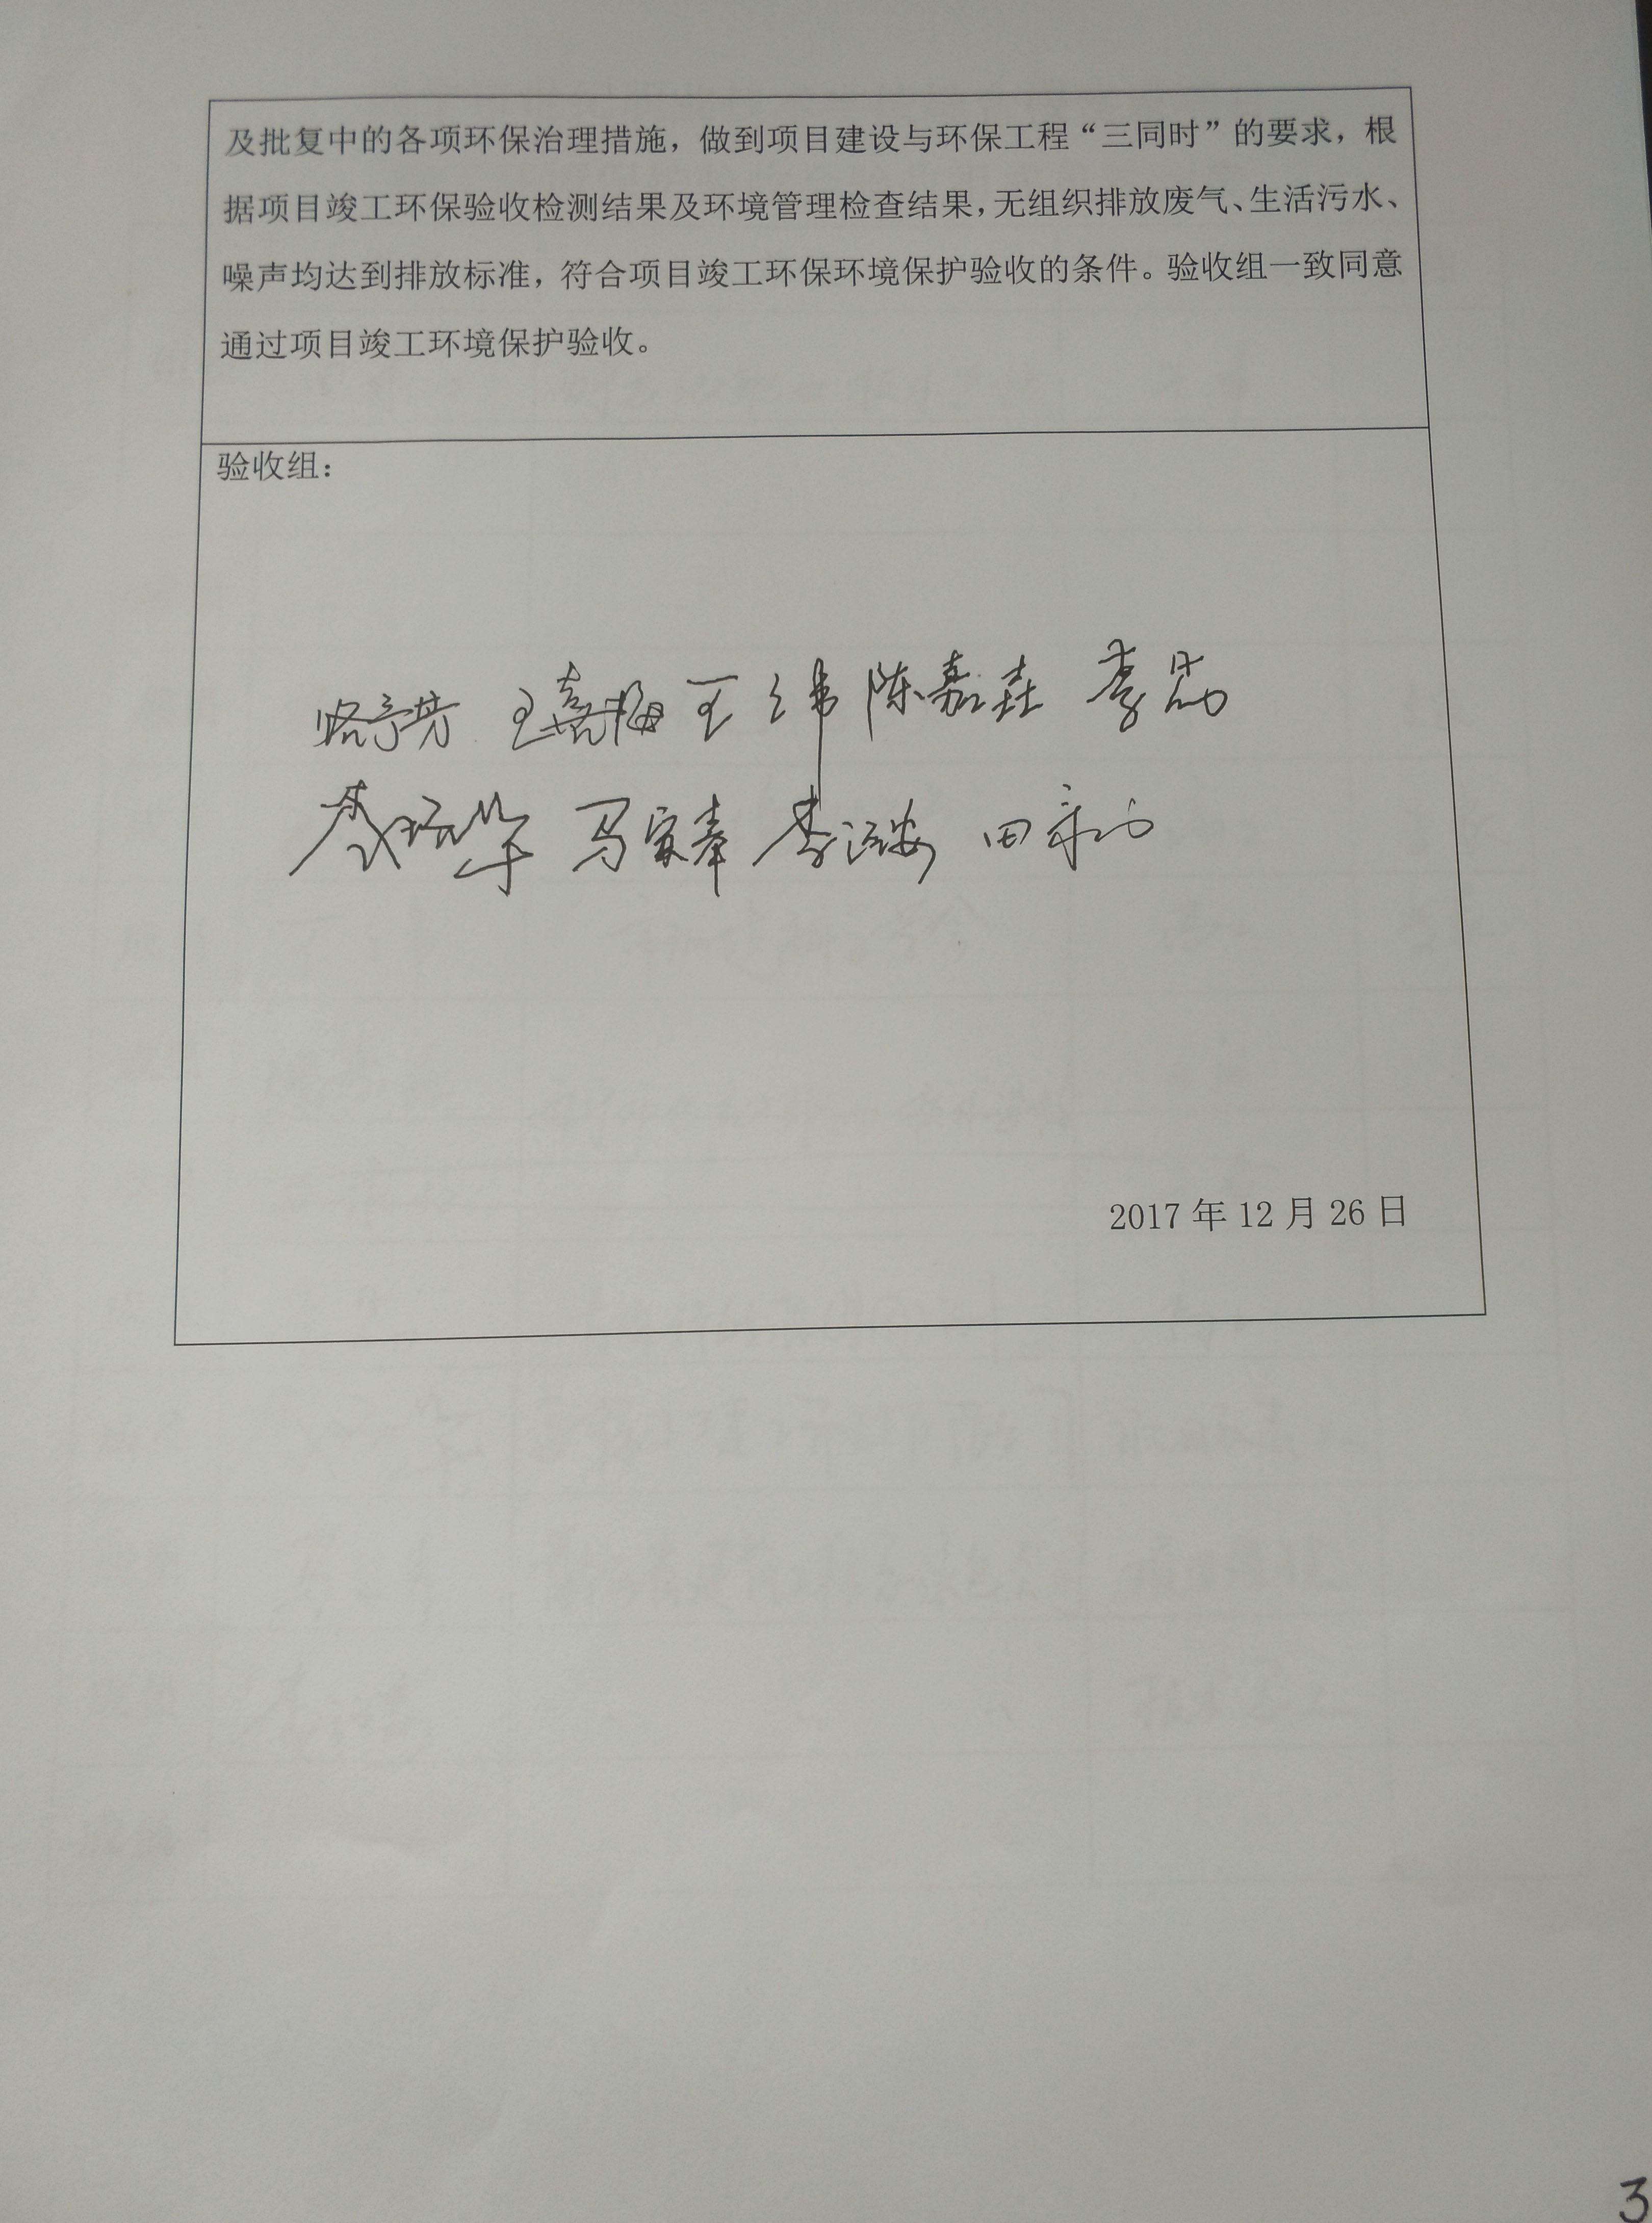 及批复中的各项环保治理措施，做到项目建设与环保工程“三同时”的要求，根
据项目竣工环保验收检测结果及环境管理检查结果，无组织排放废气、生活污水、
噪声均达到排放标准，符合项目竣工环保环境保护验收的条件。验收组一致同意
通过项目竣工环境保护验收。
验收组：
王喜梅 王纬 陈嘉垚 李
李 华 马家奉 李 田
2017 年 12 月 26 日
3